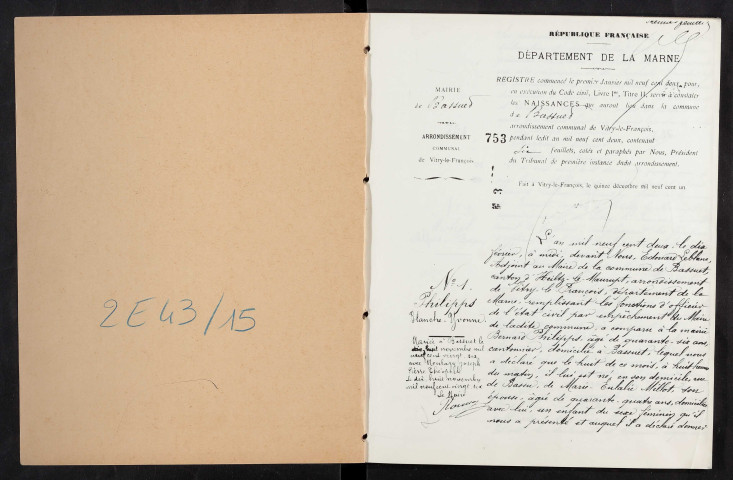 2E43/15
RÉPUBLIQUE FRANÇAISE
DÉPARTEMENT DE LA MARNE
MAIRIE
de Bassuet
ARRONDISSEMENT
COMMUNAL
de Vitry-le-François.
753
REGISTRE commencé le premier Janvier mil neuf cent deux, pour,
en exécution du Code civil, Livre Ier, Titre II, servir à constater
les NAISSANCES qui auront lieu dans la commune
de Bassuet
arrondissement communal de Vitry-le-François,
pendant ledit an mil neuf cent deux, contenant
six feuillets, cotés et paraphés par Nous, Président
du Tribunal de première instance dudit arrondissement.
Fait à Vitry-le-François, le quinze décembre mil neuf cent un
No 1.
Philipps
Blanche-Yvonne
Mariée à Bassuet le
novembre mil
neuf cent vingt six
avec Joseph
Pierre
Le dix huit novembre
mil neuf cent vingt six
Le Maire
L'an mil neuf cent deux, le dix
février, à midi, devant Nous, Edouard Leblanc,
adjoint au Maire de la commune de Bassuet,
canton d'Heiltz-le-Maurupt, arrondissement
de Vitry-le-François, département de la
Marne, remplissant les fonctions d'officier
de l'état civil par empêchement du Maire
de ladite commune, a comparu à la mairie
Bernard Philipps, âgé de quarante-six ans,
cantonnier, domicilié à Bassuet, lequel nous
a déclaré que le huit de ce mois, à huit heures
du matin, il lui est né, en son domicile, rue
de Bassu, de Marie-Eulalie Millot, son
épouse, âgée de quarante-quatre ans, domiciliée
avec lui, un enfant du sexe féminin qu'il
nous a présenté et auquel il a déclaré donner